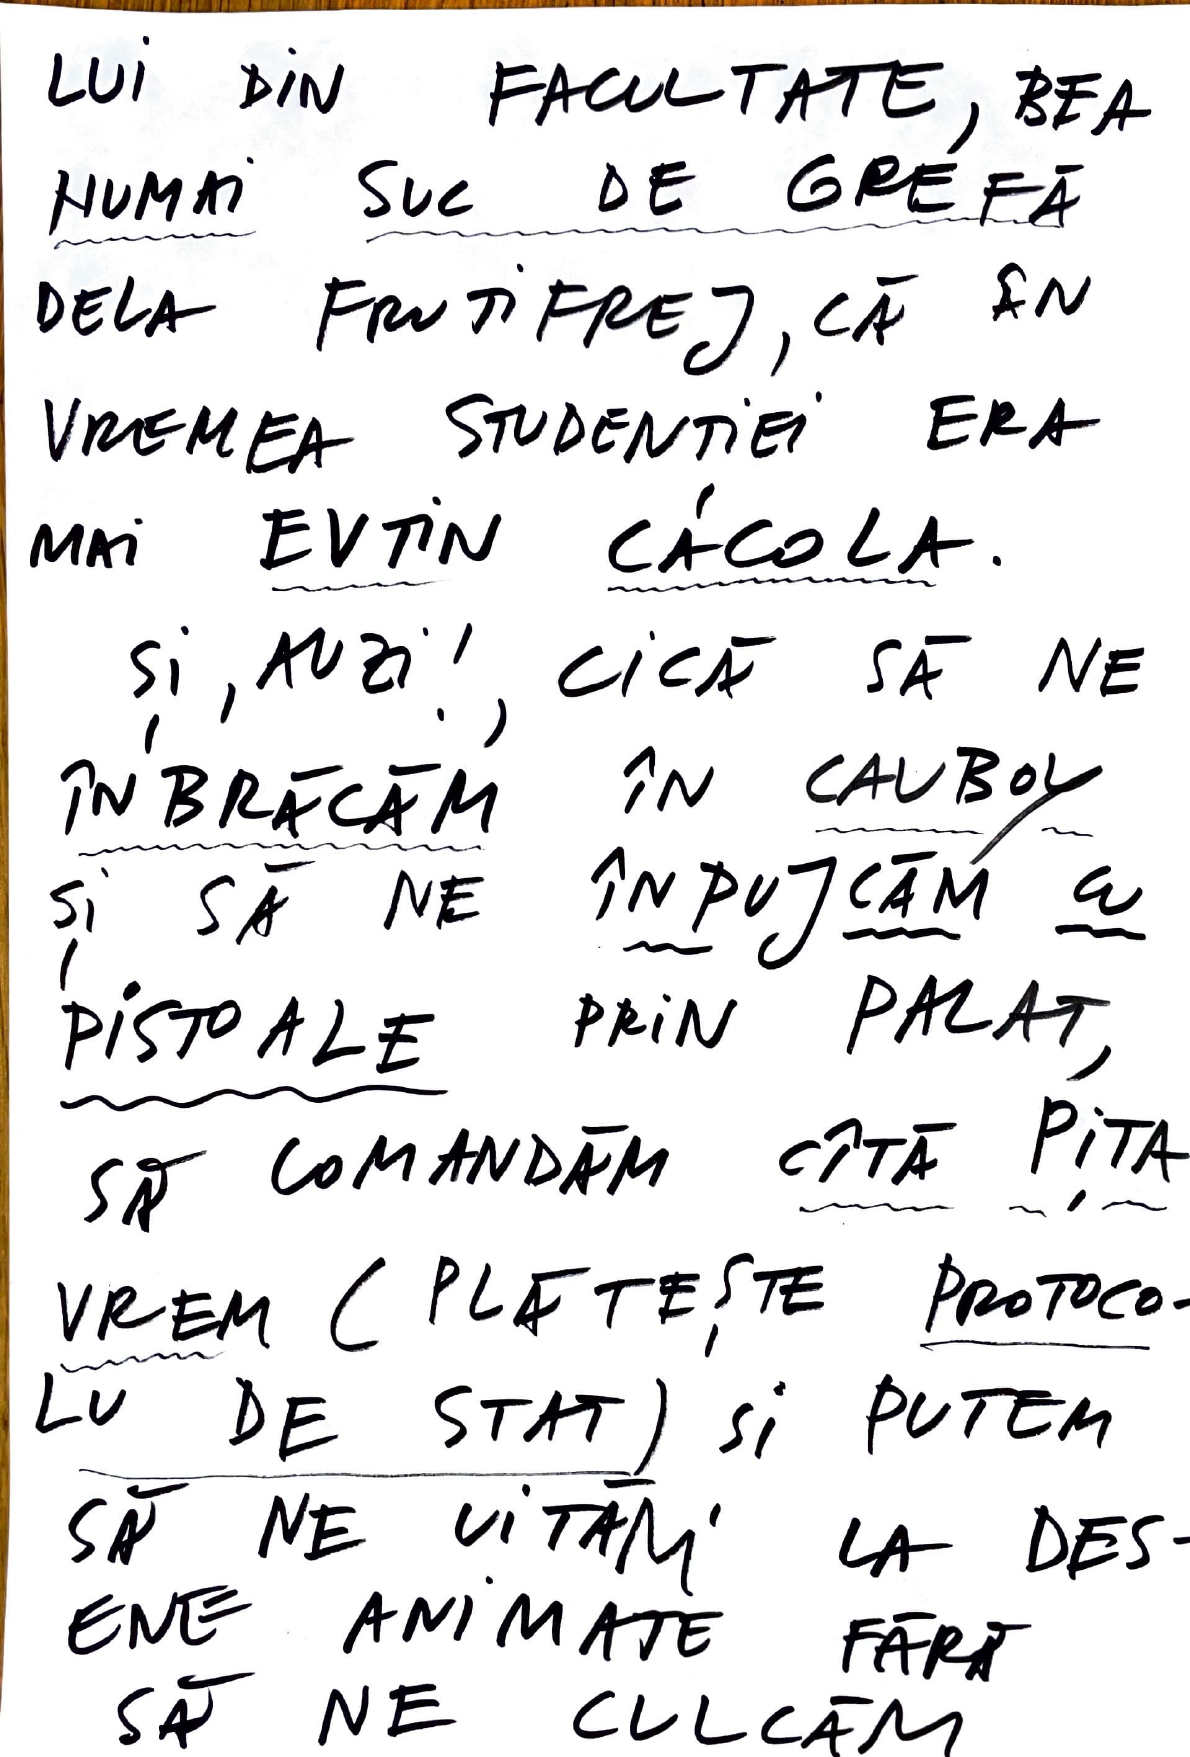 LUI DIN FACULTATE, BEA
NUMAI SUC DE GREFĂ
DELA FRUTIFREJ, CĂ ÎN
VREMEA STUDENTIEI ERA
MAI EVTIN CÁCOLA.
ȘI, AUZI!, CICĂ SĂ NE
ÎNBRĂCĂM ÎN CAUBOY
ȘI SĂ NE ÎNPUJCĂM CU
PISTOALE PRIN PALAT,
SĂ COMANDĂM CÎTĂ PIȚA
VREM (PLĂTEȘTE PROTOCO-
LU DE STAT) SI PUTEM
SĂ NE UITĂM LA DES-
ENE ANIMATE FĂRĂ
SĂ NE CULCĂM